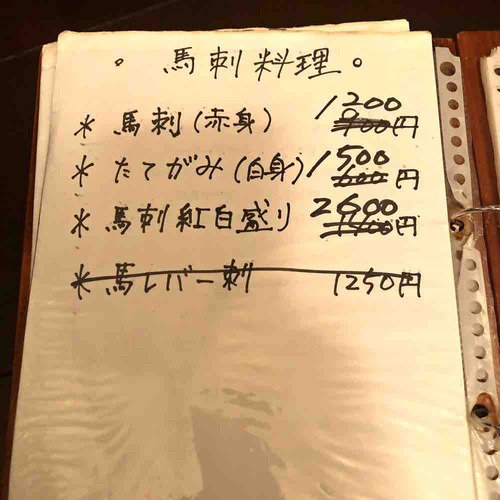 。馬刺料理。
* 馬刺(赤身) 1200 900円
* たてがみ(白身) 1500 円
* 馬刺紅白盛り 2600 円
* 馬レバー刺 1250円